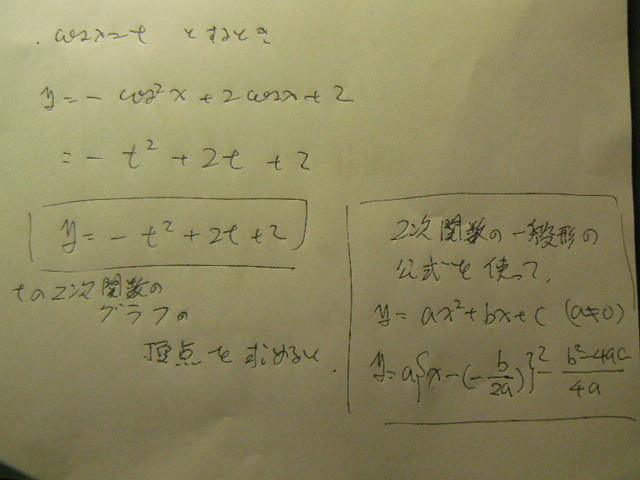 . cosx=t とするとき
y=-cos²x+2cosx+2
=-t²+2t+2
y=-t²+2t+2
tの2次関数の
グラフの
頂点を求めると.
2次関数の一般形の
公式を使って,
y=ax²+bx+c (a≠0)
y=a{x-(-b/2a)}²-(b²-4ac)/4a